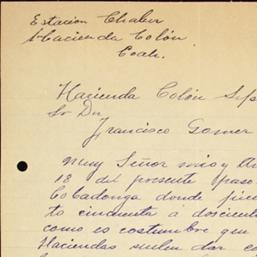 Estacion Chabur
Hacienda Colón
Coah.
Hacienda Colón Sep
Sr Dn
Francisco Gomer
Muy Señor mio y
18 del presente paso
Cobadonga donde
to cincuenta á doscient
como es costumbre que
Haciendas suelen dar co